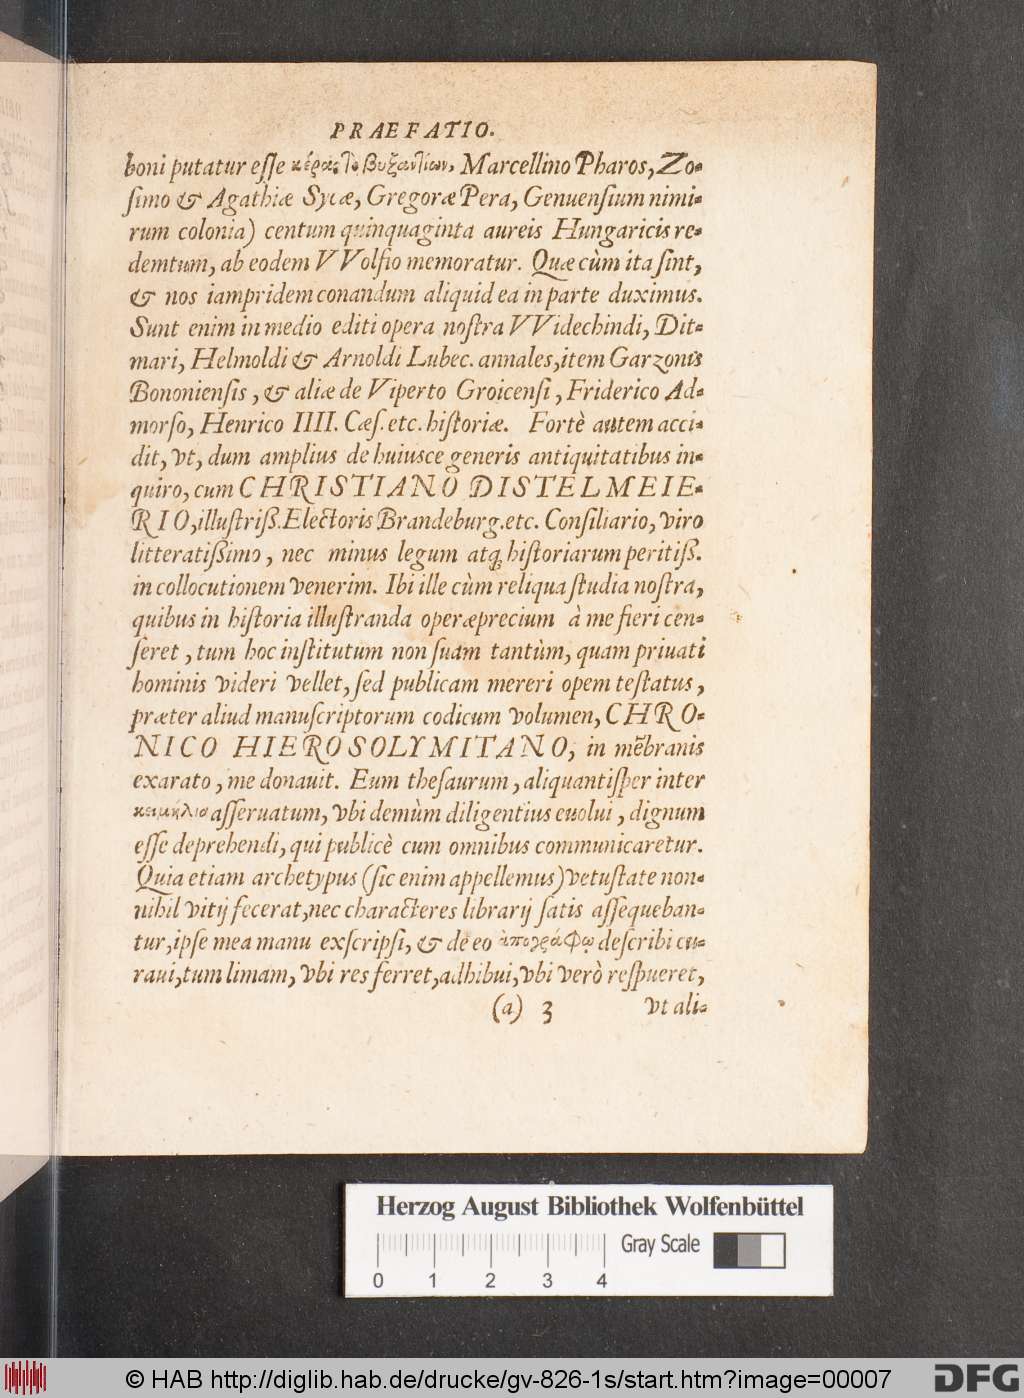 PRAEFATIO.
boni putatur esse κέρας τ Βυζαντίων, Marcellino Pharos, Zo-
simo & Agathiæ Sycæ, Gregoræ Pera, Genuensium nimi-
rum colonia) centum quinquaginta aureis Hungaricis re-
demtum, ab eodem VVolfio memoratur. Quæ cùm ita sint,
& nos iampridem conandum aliquid ea in parte duximus.
Sunt enim in medio editi opera nostra VVidechindi, Dit-
mari, Helmoldi & Arnoldi Lubec. annales, item Garzonis
Bononiensis, & aliæ de Viperto Groicensi, Friderico Ad-
morso, Henrico IIII. Cæs. etc. historiæ. Fortè autem acci-
dit, vt, dum amplius de huiusce generis antiquitatibus in-
quiro, cum CHRISTIANO DISTELMEIE-
RIO, illustriß. Electoris Brandeburg. etc. Consiliario, viro
litteratißimo, nec minus legum atq; historiarum peritiß.
in collocutionem venerim. Ibi ille cùm reliqua studia nostra,
quibus in historia illustranda operæprecium à me fieri cen-
seret, tum hoc institutum non suam tantùm, quam priuati
hominis videri vellet, sed publicam mereri opem testatus,
præter aliud manuscriptorum codicum volumen, CHRO-
NICO HIEROSOLYMITANO, in mēbranis
exarato, me donauit. Eum thesaurum, aliquantisper inter
κειμήλια asseruatum, vbi demùm diligentius euolui, dignum
esse deprehendi, qui publicè cum omnibus communicaretur.
Quia etiam archetypus (sic enim appellemus) vetustate non-
nihil vitij fecerat, nec characteres librarij satis assequeban-
tur, ipse mea manu exscripsi, & de eo ἀπογράφῳ describi cu-
raui, tum limam, vbi res ferret, adhibui, vbi verò respueret,
(a) 3 vt ali-
Herzog August Bibliothek Wolfenbüttel
Gray Scale
0 1 2 3 4
© HAB http://diglib.hab.de/drucke/gv-826-1s/start.htm?image=00007
DFG